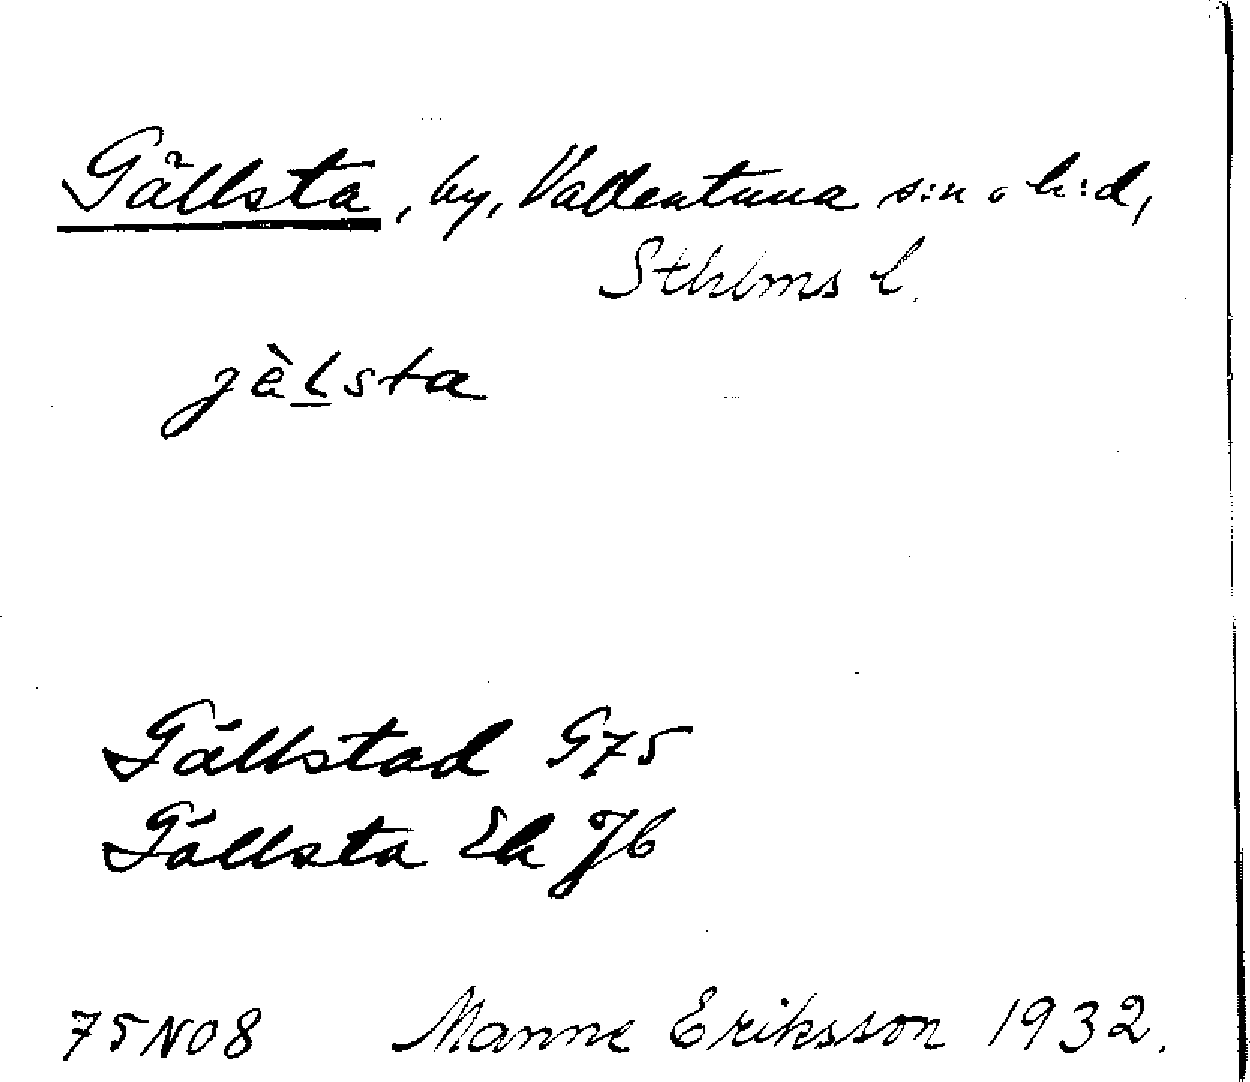 Gällsta, by, Vallentuna s:n o h:d,
Sthlms l.
jàlsta
Gällstad G75
Gällsta Ek Jb
75N08 Manne Eriksson 1932.